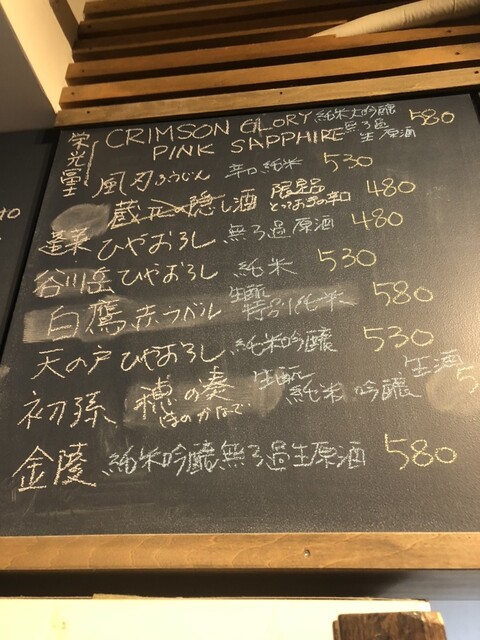 栄光冨士 CRIMSON GLORY 純米大吟醸 580
PINK SAPPHIRE 無ろ過生原酒
風刃 ふうじん 辛口純米 530
蔵元の隠し酒 限定品 とっておきの辛口 480
蓬莱 ひやおろし 無ろ過原酒 480
谷川岳 ひやおろし 純米 530
白鷹 赤ラベル 生酛 特別純米 580
天の戸 ひやおろし 純米吟醸 530
初孫 穂の奏 ほのかなで 生酛 純米吟醸 生酒 5
金陵 純米吟醸無ろ過生原酒 580